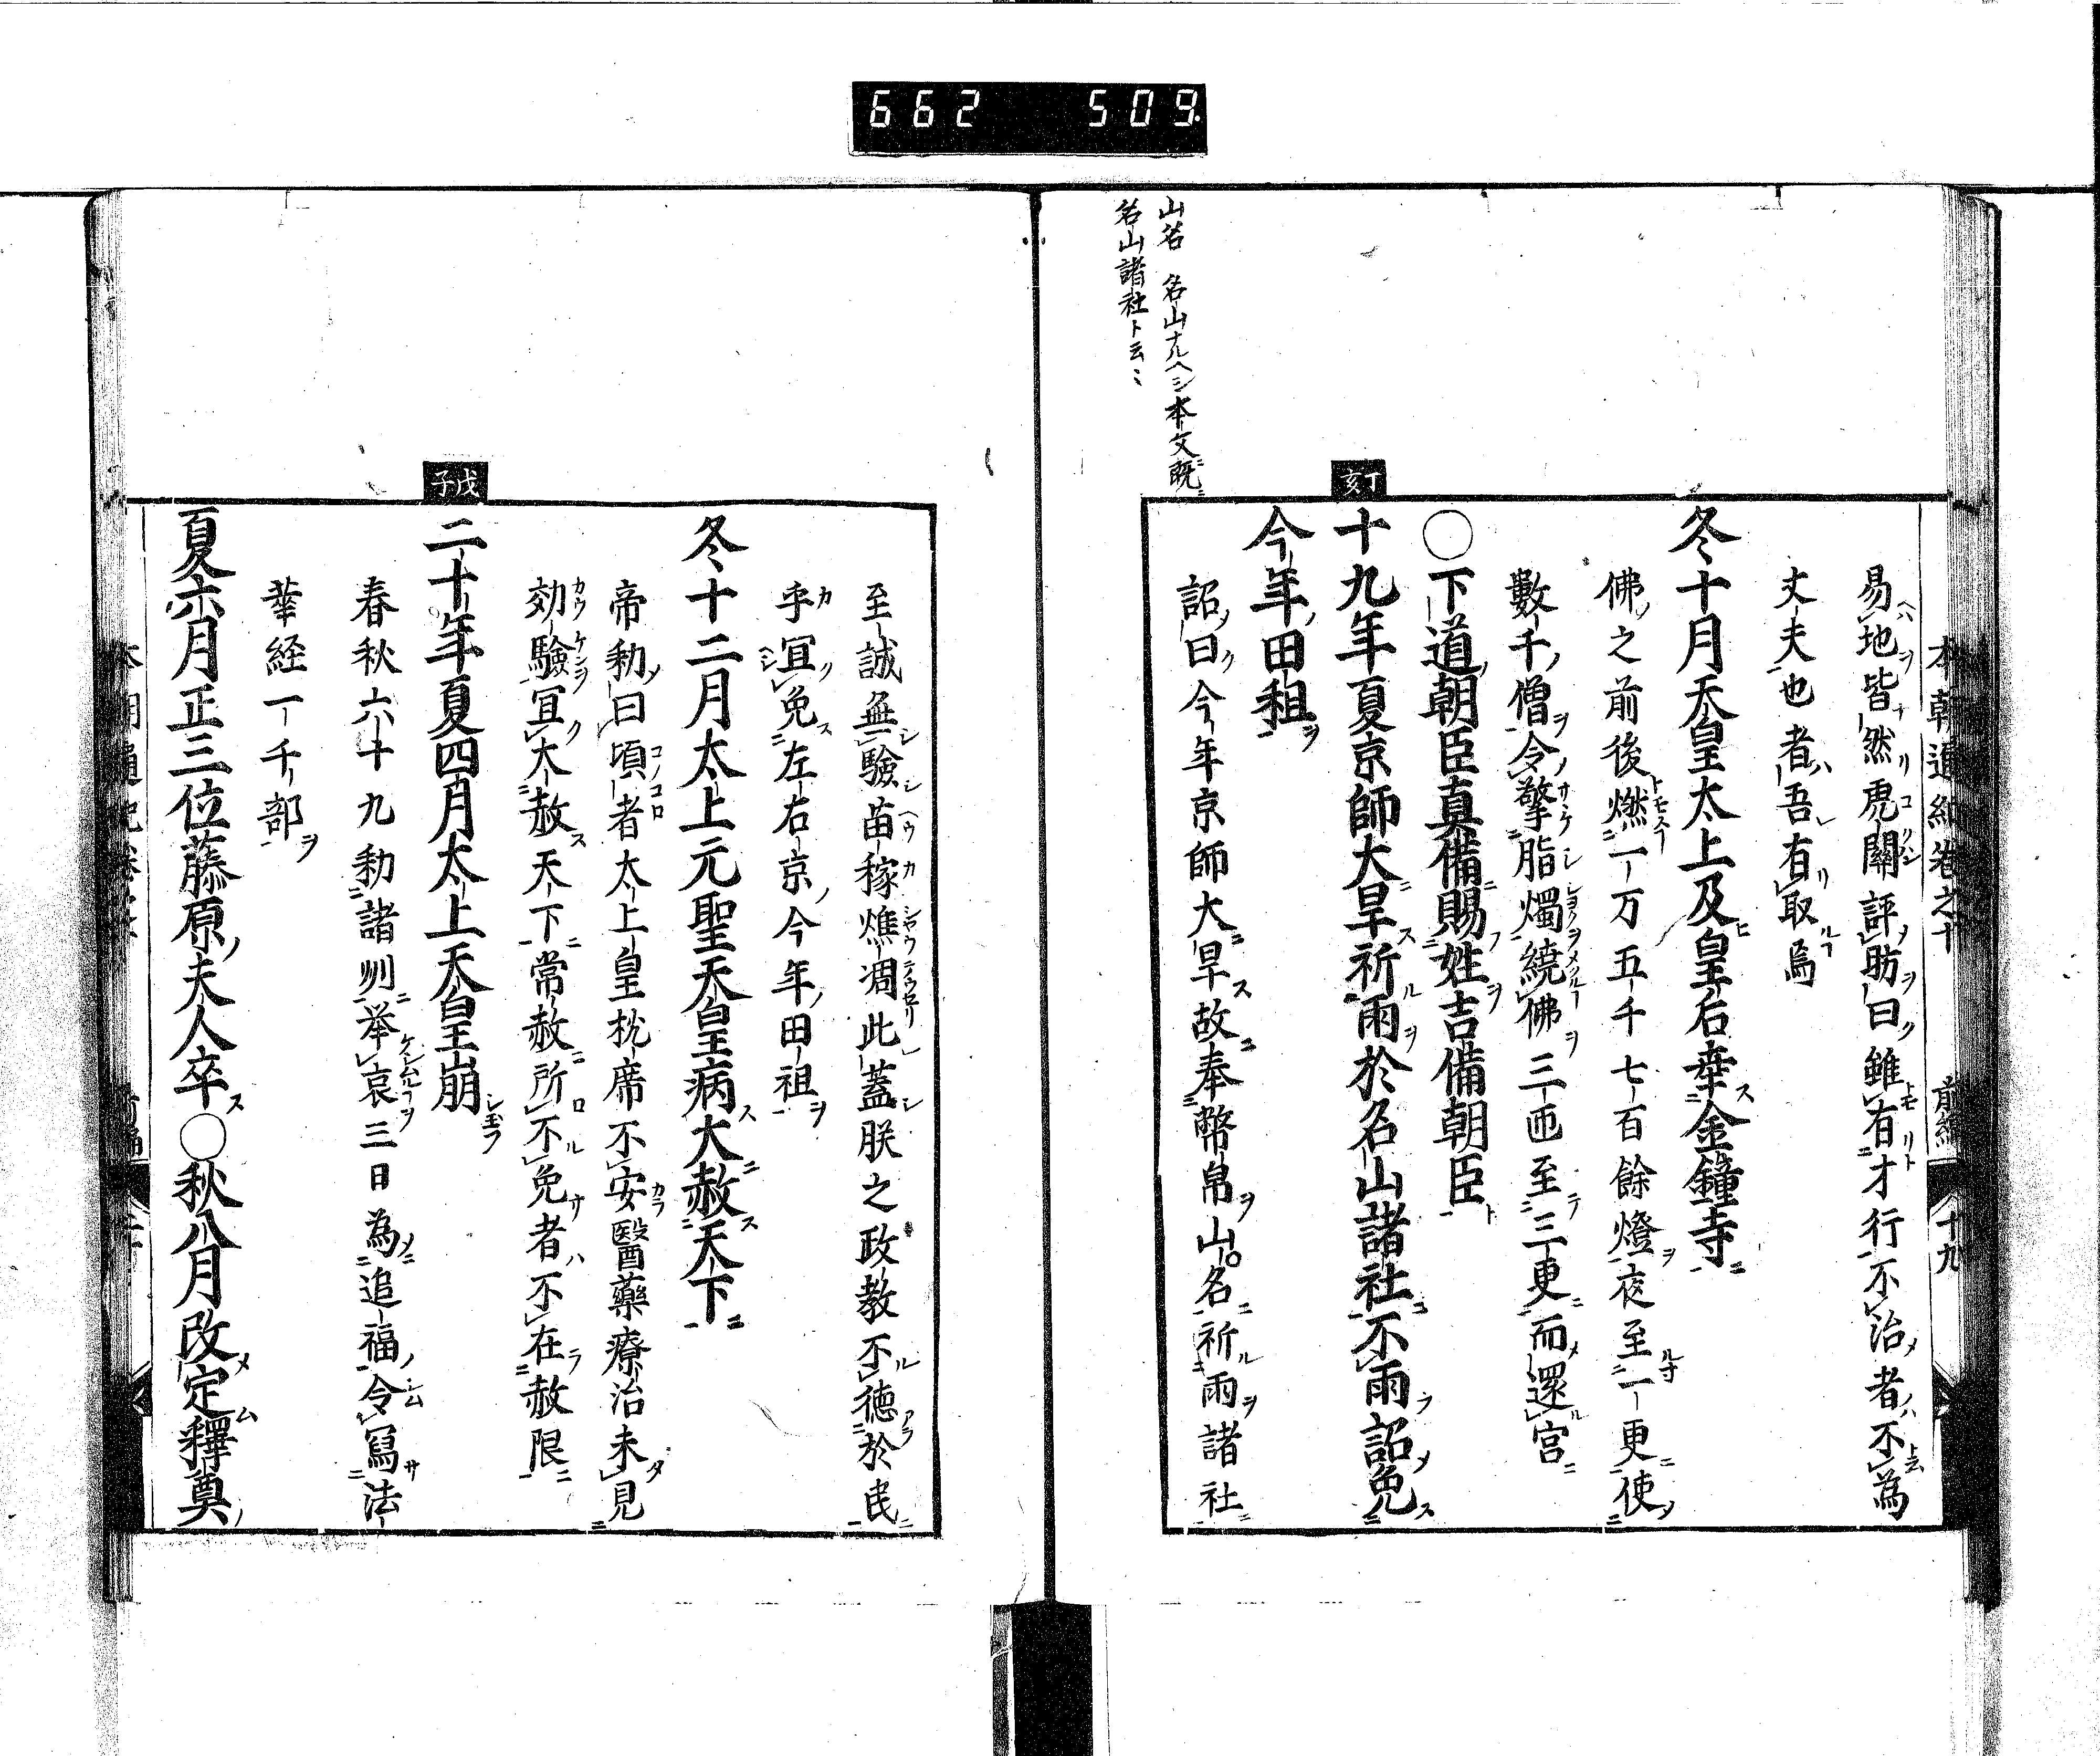 662 509
山名 名山ナルヘシ本文既ニ
名山諸社ト云々
本朝通紀卷之十 前編 十九
易地皆然虎關評肪曰雖有才行不治者不為
丈夫也者吾有取焉
冬十月天皇太上及皇后幸金鐘寺
佛之前後燃一万五千七百餘燈夜至一更使
數千僧令擎脂燭繞佛三匝至三更而還宮
〇下道朝臣真備賜姓吉備朝臣
丁亥
十九年夏京師大旱祈雨於名山諸社不雨詔免
今年田租
詔曰今年京師大旱故奉幣帛山名祈雨諸社
至誠無驗苗稼燋凋此蓋朕之政教不徳於民
乎宜免左右京今年田祖
冬十二月太上元聖天皇病大赦天下
帝勅曰頃者太上皇枕席不安醫藥療治未見
効驗宜大赦天下常赦所不免者不在赦限
戊子
二十年夏四月太上天皇崩
春秋六十九勅諸州举哀三日為追福令寫法
華経一千部
夏六月正三位藤原夫人卒〇秋八月改定釋奠